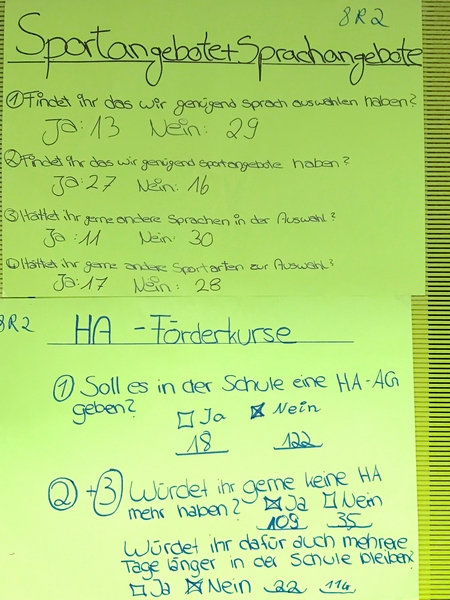 8R2
Sportangebote+Sprachangebote
① Findet ihr das wir genügend sprach auswahlen haben?
Ja: 13 Nein: 29
② Findet ihr das wir genügend sportangebote haben?
Ja: 27 Nein: 16
③ Hättet ihr gerne andere Sprachen in der Auswahl?
Ja: 11 Nein: 30
④ Hättet ihr gerne andere Sportarten zur Auswahl?
Ja: 17 Nein: 28
8R2
HA - Förderkurse
① Soll es in der Schule eine HA-AG
geben?
☐ Ja ☒ Nein
18 122
② + ③ Würdet ihr gerne keine HA
mehr haben? ☒ Ja ☐ Nein
109 35
Würdet ihr dafür auch mehrere
Tage länger in der Schule bleiben?
☐ Ja ☒ Nein 22 114